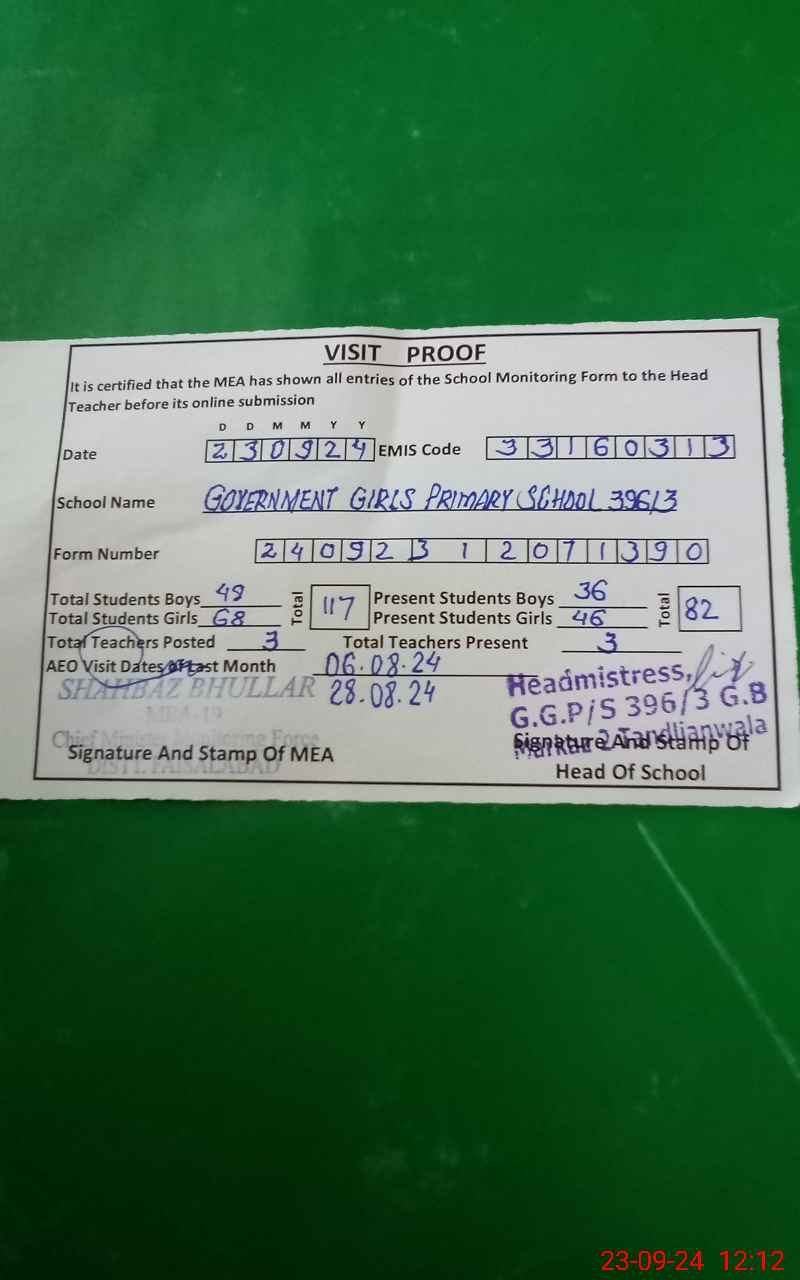 VISIT PROOF
It is certified that the MEA has shown all entries of the School Monitoring Form to the Head
Teacher before its online submission
D D M M Y Y
Date 230924 EMIS Code 33160313
School Name GOVERNMENT GIRLS PRIMARY SCHOOL 396/3
Form Number 24092312071390
Total Students Boys 49 Total 117 Present Students Boys 36 Total 82
Total Students Girls 68 Present Students Girls 46
Total Teachers Posted 3 Total Teachers Present 3
AEO Visit Dates of Last Month 06.08.24
28.08.24
SHAHBAZ BHULLAR
MEA-19
Chief Minister Monitoring Force
DISTT. FAISALABAD
Signature And Stamp Of MEA
Headmistress,
G.G.P/S 396/3 G.B
Markaz 2 Tandlianwala
Signature And Stamp Of
Head Of School
23-09-24 12:12